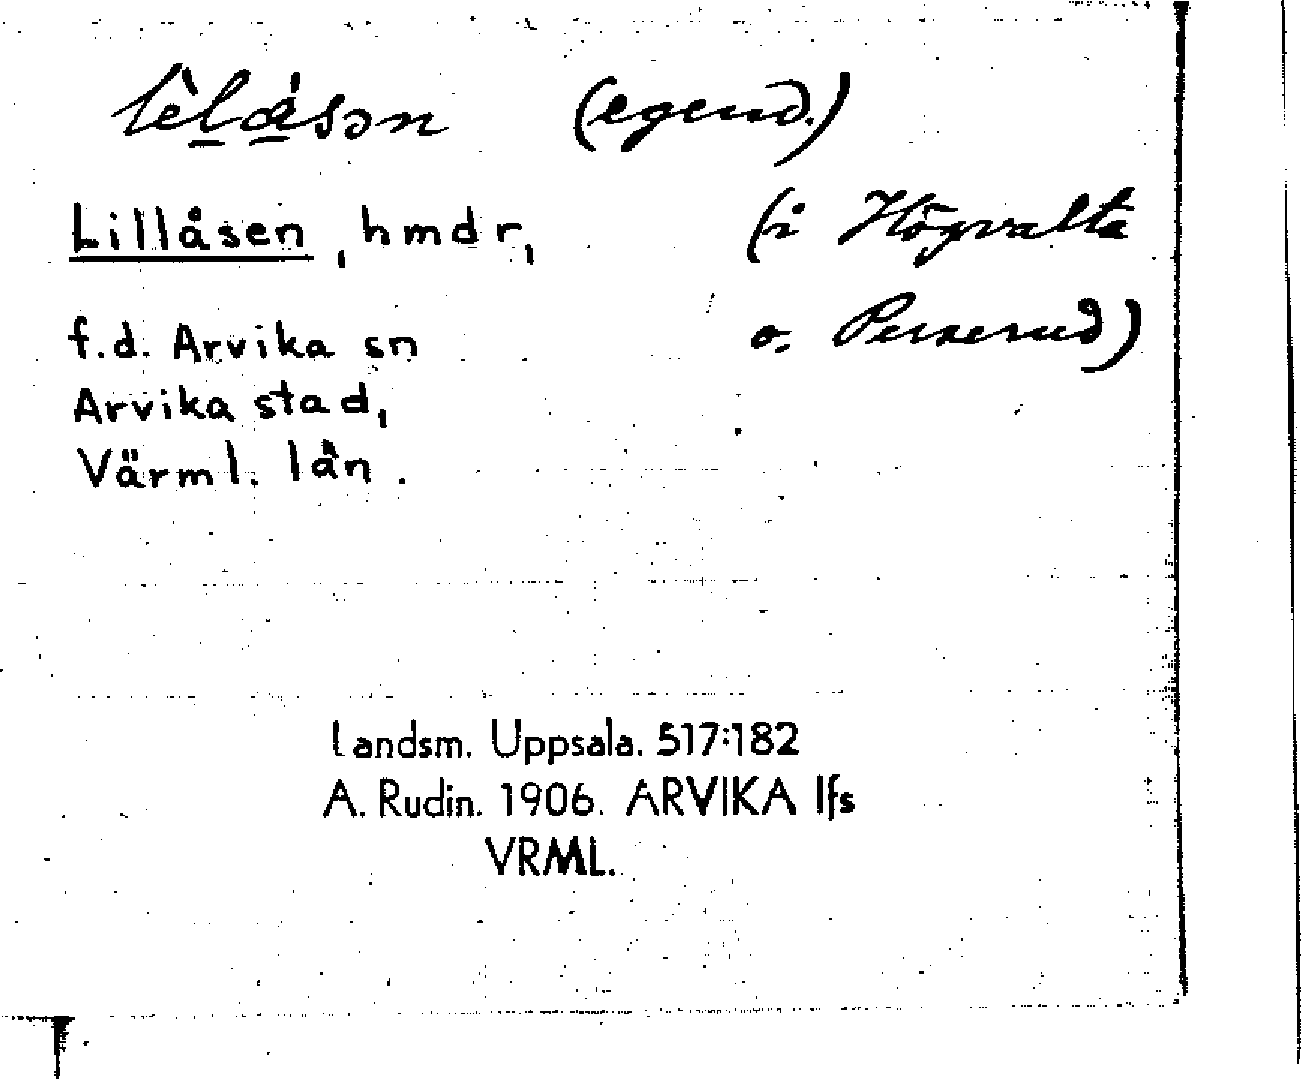 lèlåsən (egend.)
Lillåsen, hmdr, (i Högvalta
f.d. Arvika sn o. Perserud)
Arvika stad,
Värml. län.
Landsm. Uppsala. 517:182
A. Rudin. 1906. ARVIKA lfs
VRML.